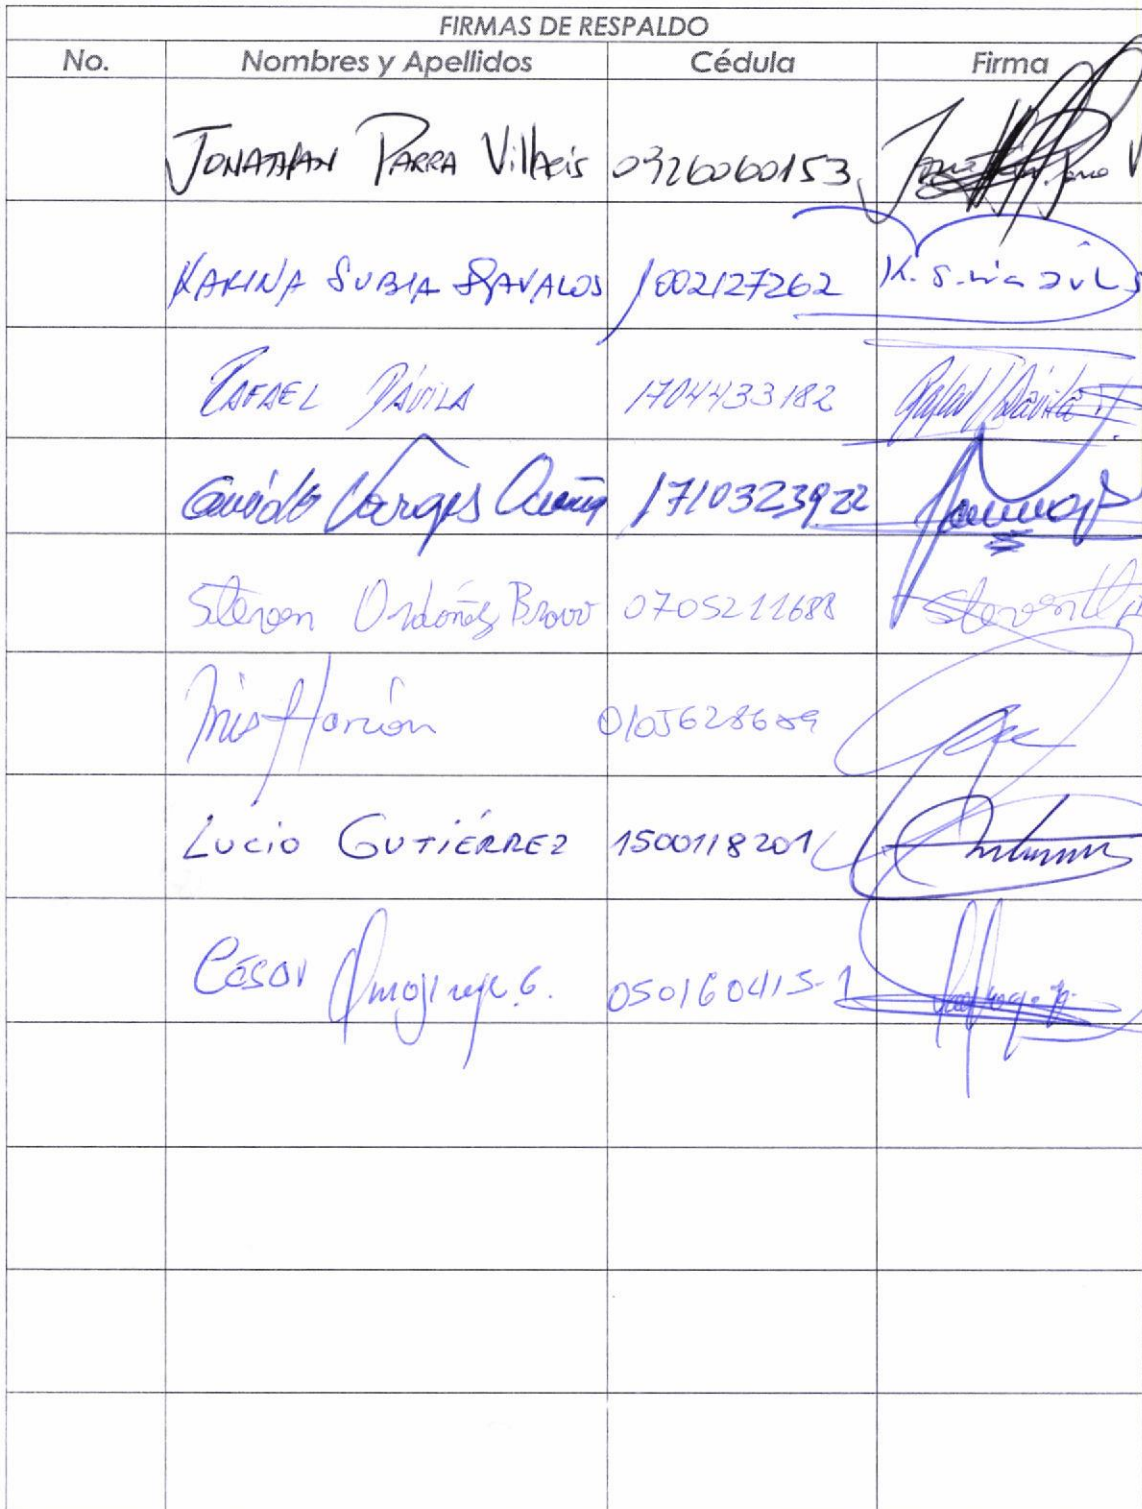 FIRMAS DE RESPALDO
No. Nombres y Apellidos Cédula Firma
JONATHAN PARRA Villacis 0926060153
KARINA SUBIA DAVALOS 1002127262
RAFAEL DÁVILA 1704433182 Rafael Dávila
Guido Vargas 1710323922
Steven Ordoñez Bravo 0705211688 Steven
0105628689
LUCIO GUTIÉRREZ 1500118201
César G. 050160415-1